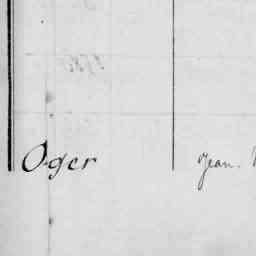 Oger Jean.